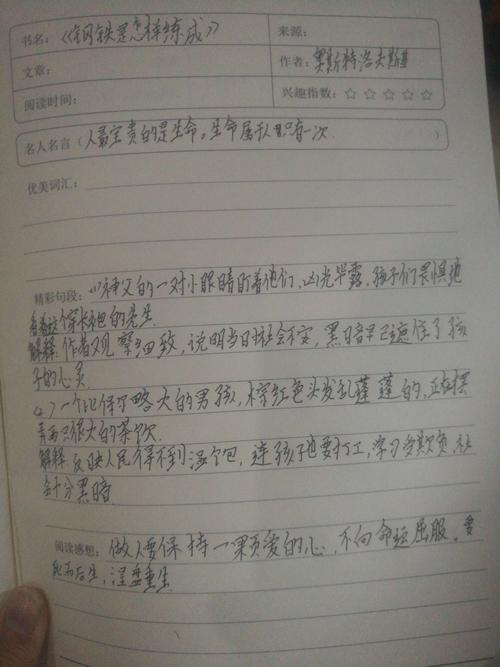 书名：《钢铁是怎样练成》
来源：
文章：
作者：奥斯特洛夫斯基
阅读时间：
兴趣指数：☆ ☆ ☆ ☆ ☆
名人名言（人最宝贵的是生命。生命属于人只有一次）
优美词汇：
精彩句段：(1)神父的一对小眼睛盯着他们，凶光毕露，孩子们畏惧地
看着这个穿长袍的先生
解释：作者观察细致，说明当日社会不安，黑暗早已遮住了孩
子的心灵
(2)一个比保尔略大的男孩，棕红色头发乱蓬蓬的，正在摆
弄两只很大的茶饮
解释：反映人民得不到温饱，连孩子也要打工，
会十分黑暗
阅读感想：做人要保持一颗爱的心，不向命运屈服。要
死而后生，涅盘重生